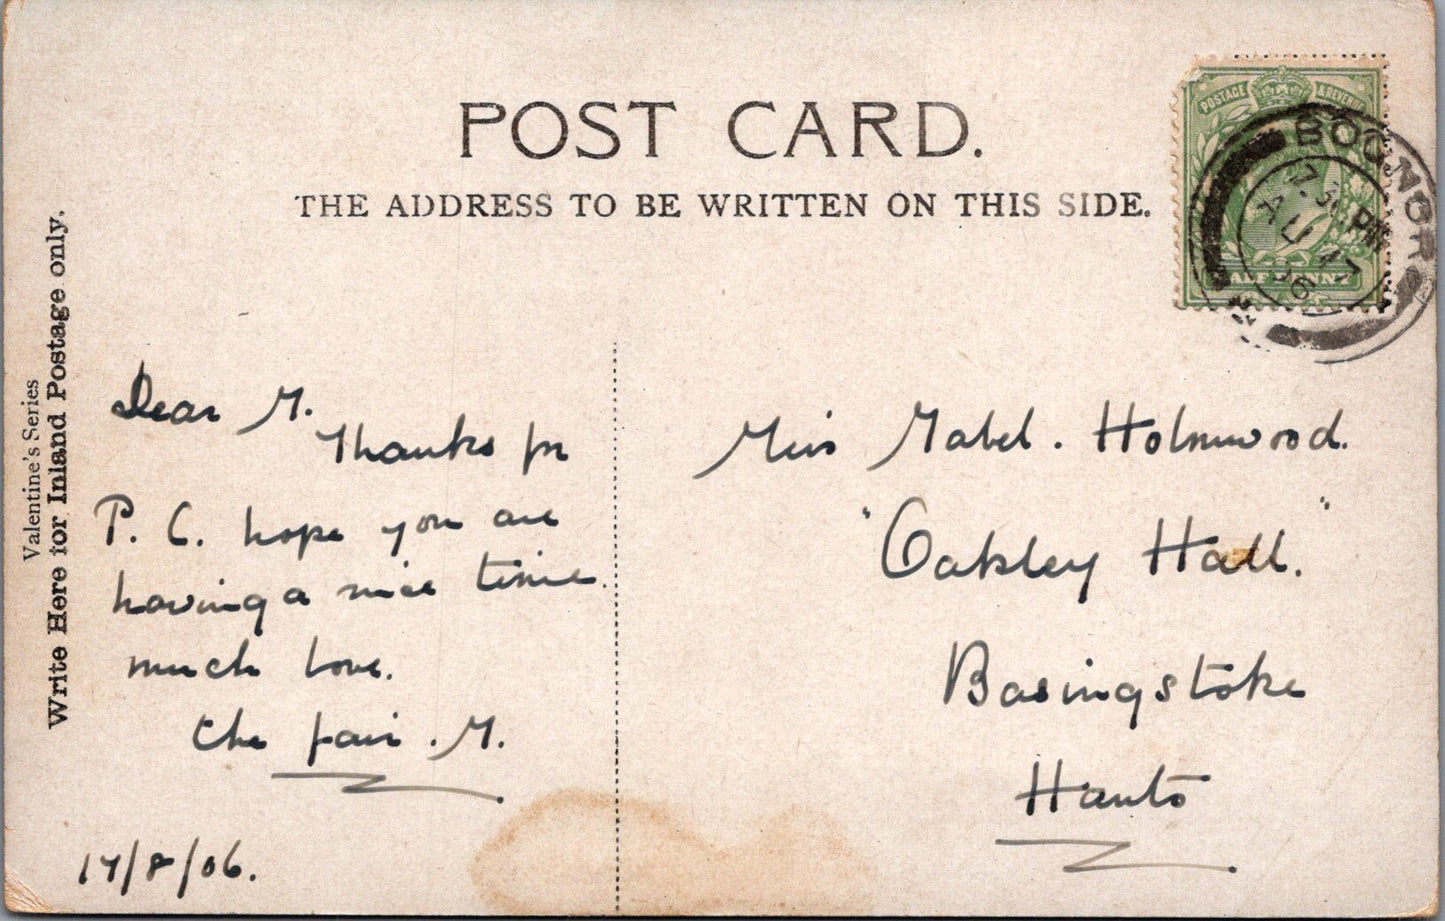 POST CARD.
THE ADDRESS TO BE WRITTEN ON THIS SIDE.
POSTAGE & REVENUE
HALFPENNY
BOGNOR
7.30 PM
AU 17
06
Valentine's Series
Write Here for Inland Postage only.
Dear M.
Thanks for
P. C. hope you are
having a nice time.
much love.
the pair . M.
17/8/06.
Miss Mabel. Holmwood.
"Oakley Hall."
Basingstoke
Hants